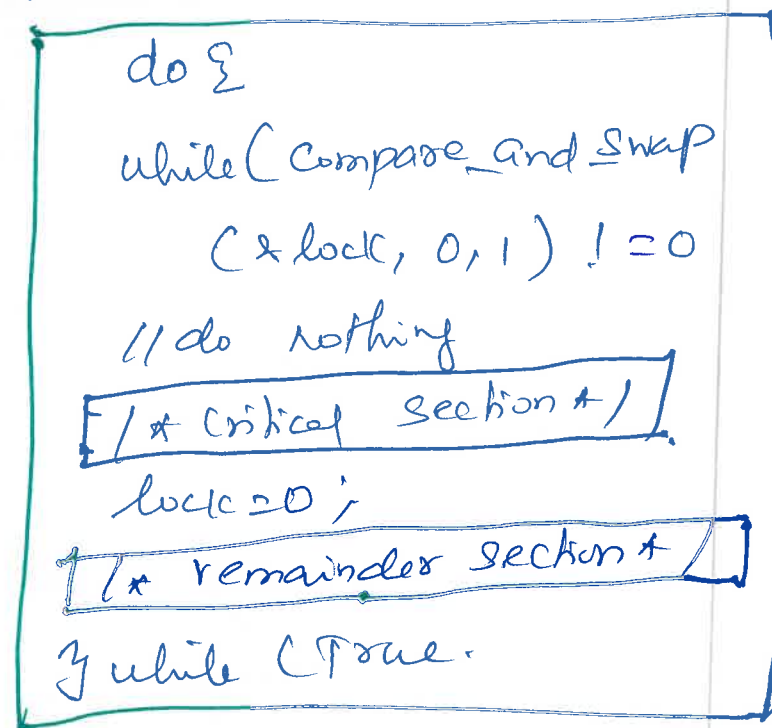 do {
while( compare_and swap
(& lock, 0, 1) ! = 0
// do nothing
/* critical section */
lock = 0;
/* remainder section */
} while (True.